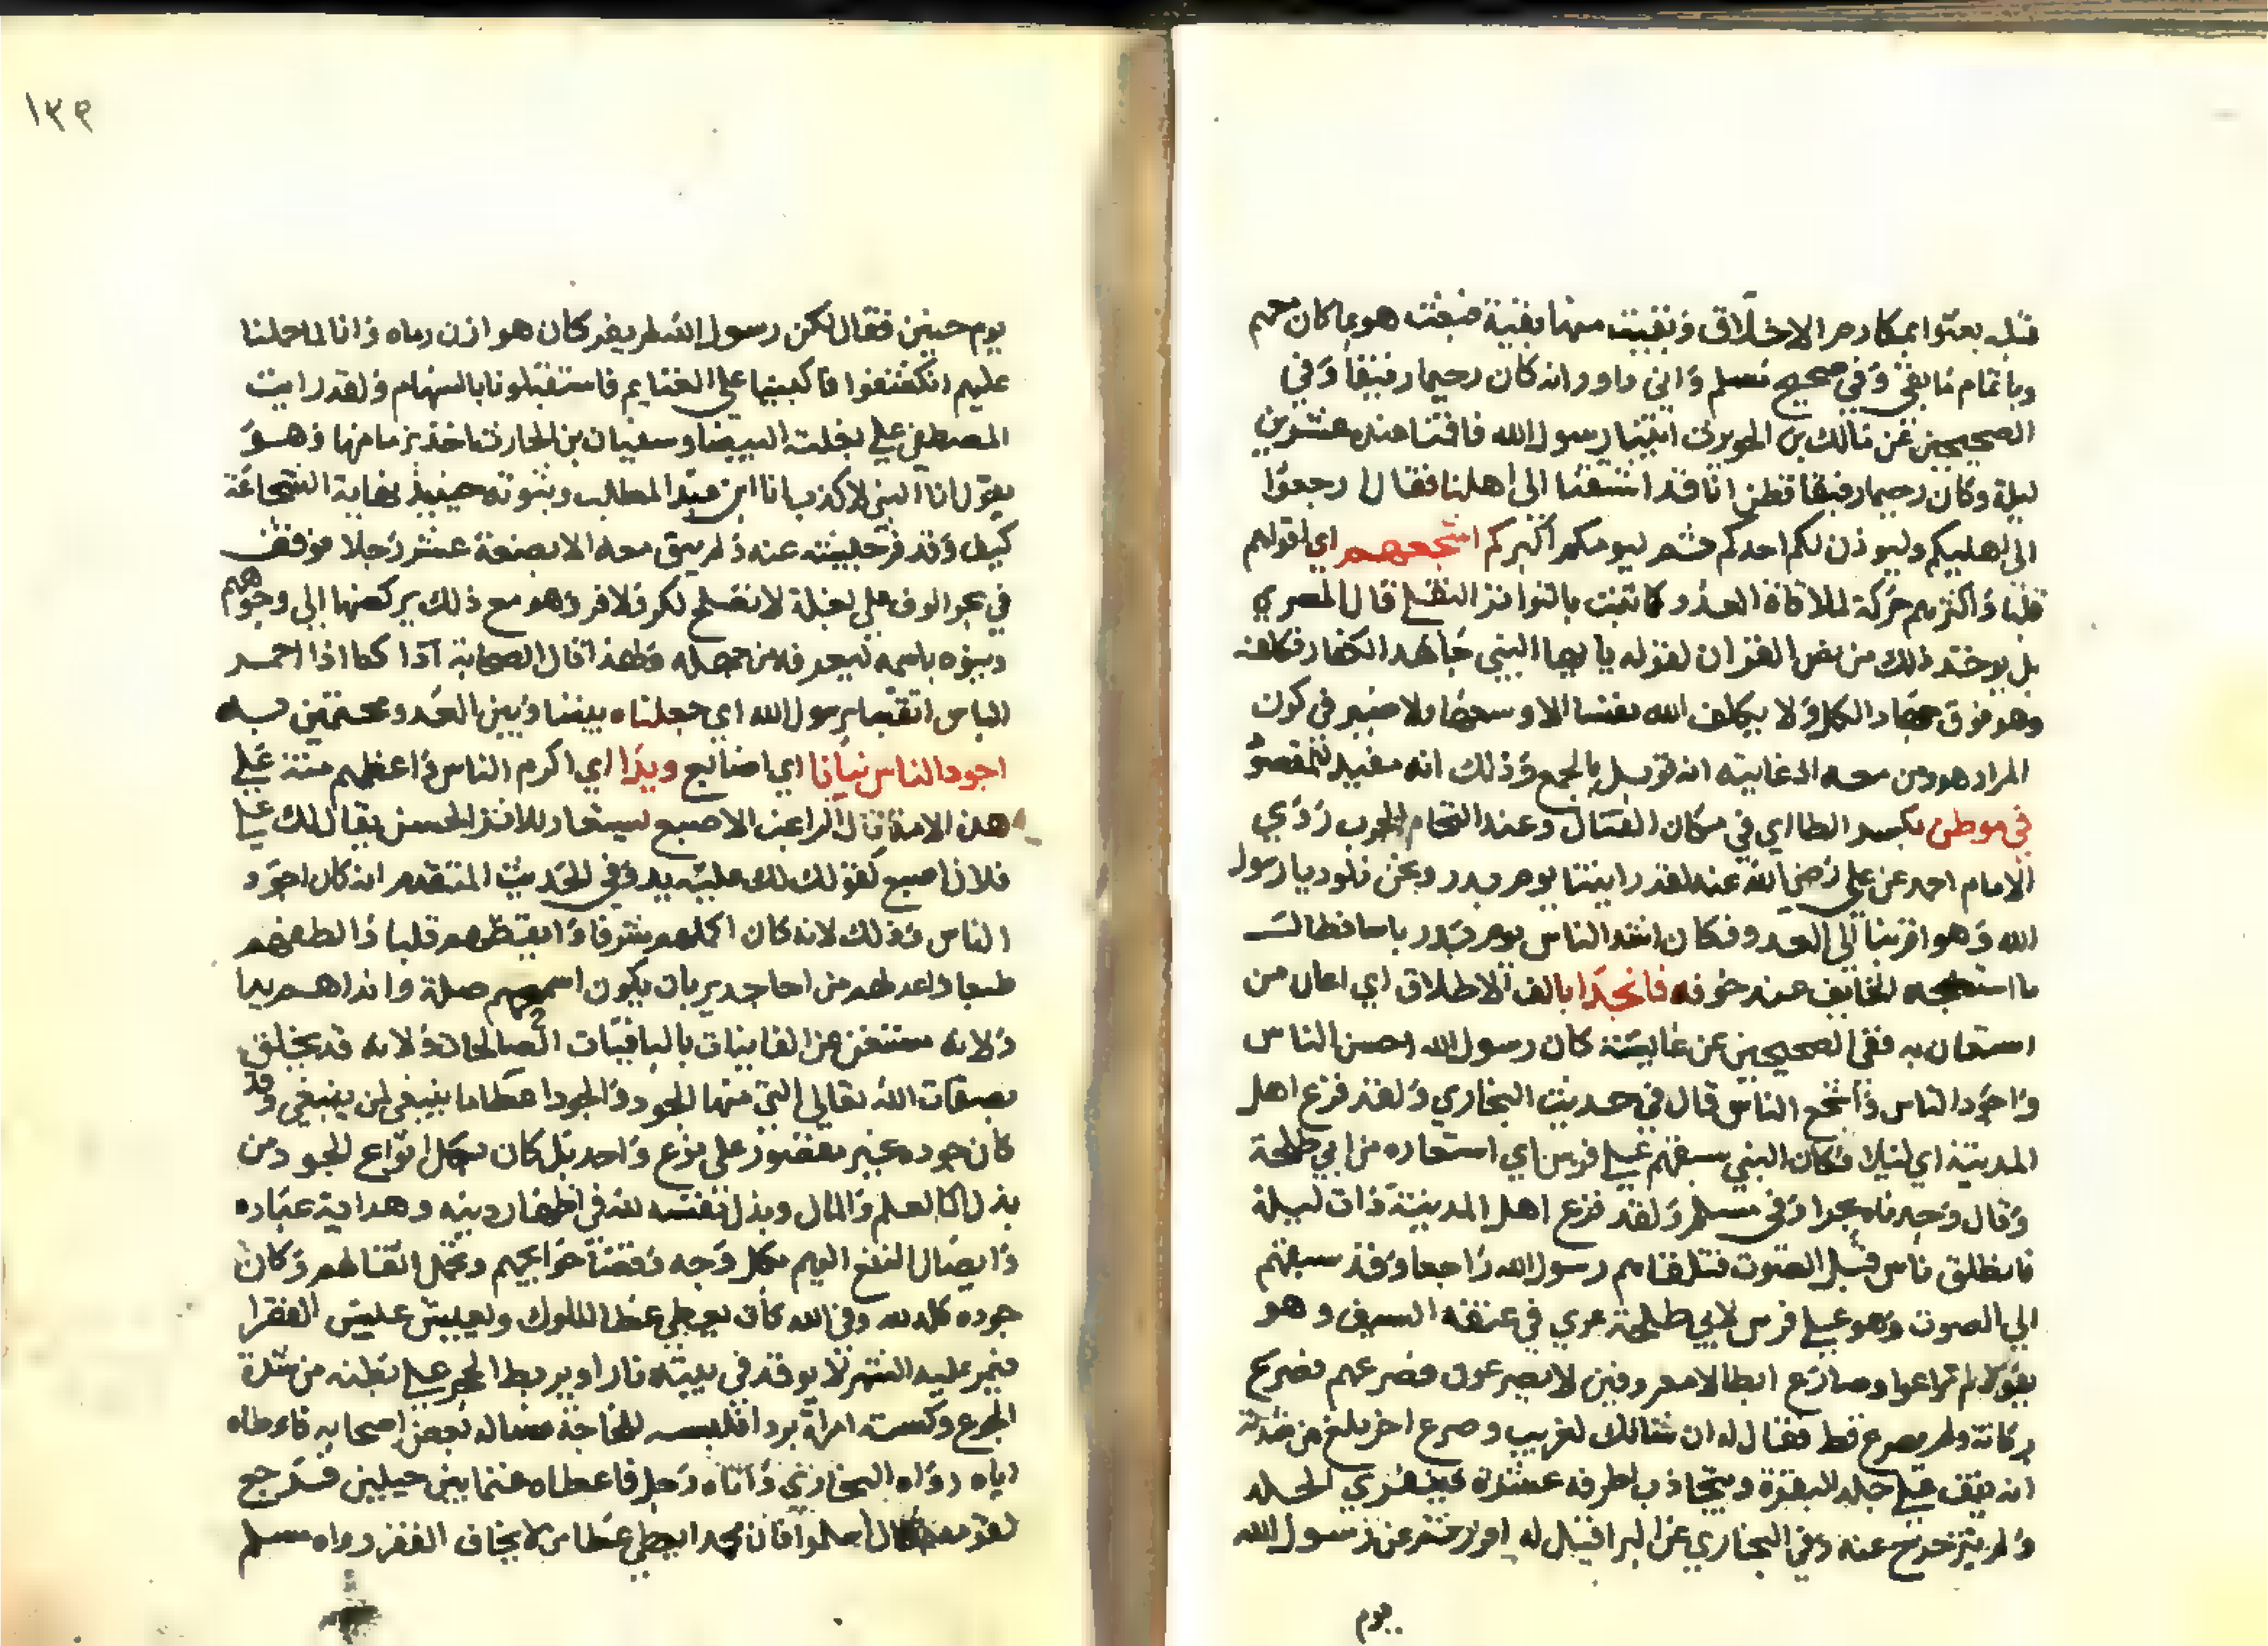 قبله بعثوا بمكارم الاخلاق وبقيت منها بقية فبعث هو بما كان معهم
وباتمام ما بقي وفي صحيح مسلم وابي داود انه كان رحيما رفيقا وفي
الصحيحين عن مالك بن الحويرث اتينا رسول الله فاقمنا عنده عشرين
ليلة وكان رحيما رفيقا فظن انا قد اشتقنا الى اهلنا فقال ارجعوا
الى اهليكم وليوذن لكم احدكم ثم ليومكم اكبركم اشجعهم اي اقواهم
قلبا واكثرهم حركة لملاقاة العدو كما ثبت بالتواتر النقلي قال المصري
بل يوخذ ذلك من نص القران لقوله يا يها النبي جاهد الكفار فكلفه
وهو فوق جهاد الكل ولا يكلف الله نفسا الا وسعها ولا ضير في كون
المراد هو ومن معه اذ غايته انه قوبل بالجمع وذلك انه مفيد للمقصود
في موطن بكسر الطا اي في مكان القتال وعند التحام الحرب روي
الامام احمد عن علي رضي الله عنه لقد رايتنا يوم بدر ونحن نلوذ يا رسول
الله وهو اقربنا الى العدو وكان اشد الناس يوم بدر باسا فطالت
ما استنجده الخايف عند خوفه فانجدا بالف الاطلاق اي اعان من
استعان به ففي الصحيحين عن عايشة كان رسول الله احسن الناس
واجود الناس واشجع الناس قال في حديث البخاري ولقد فزع اهل
المدينة اي ليلا فكان النبي سبقهم على فرس اي استعاره من ابي طلحة
وقال وجدناه بحرا وفي مسلم ولقد فزع اهل المدينة ذات ليلة
فانطلق ناس قبل الصوت فتلقاهم رسول الله راجعا وقد سبقهم
الى الصوت وهو على فرس لابي طلحة عري في عنقه السيف وهو
يقول لم تراعوا وصارع ابطالا معروفين لا يصرعون فصرعهم فصرع
ركانة ولم يصرع قط فقال له ان شانك لغريب وصرع اخر بلغ من شدته
انه يقف على جلد البقرة ويتجاذب اطرافه عشرة فيفري الجلد
ولم يتزحزح عنه وفي البخاري عن البرا قيل له افررتم عن رسول الله
يوم
١٣٩
يوم حنين فقال لكن رسول الله لم يفر كان هوازن رماه وانا لما حملنا
عليهم انكشفوا فاكببنا على الغنايم فاستقبلونا بالسهام ولقد رايت
المصطفى على بغلته البيضا وسفيان بن الحارث اخذ بزمامها وهو
يقول انا النبي لا كذب انا ابن عبد المطلب وثبوته حينيذ لغاية الشجاعة
كيف وقد فر جليشه عنه ولم يبق معه الا بضعة عشر رجلا موقف
في نحر الوف على بغلة لا تصلح لكر ولا فر وهو مع ذلك يركضها الى وجوههم
وينوه باسمه ليعرفه من جهله ولهذا قال الصحابة كنا اذا احمر
الباس اتقينا برسول الله اي جعلناه بيننا وبين العدو محتمين به
اجود الناس بنانا اي اصابع ويدا اي اكرم الناس واعظمهم منة على
هذه الامة قال الراغب الاصبع ليستعار للاثر الحسن يقال لك على
فلان اصبع كقولك لك عليه يد وفي الحديث المتقدم انه كان اجود
الناس وذلك لانه كان اكملهم شرفا وايقظهم قلبا والطفهم
طبعا واعدلهم مزاجا جدير بان يكون اسمحهم صلة وانداهم يدا
ولانه مستغن عن الفانيات بالباقيات الصالحات ولانه قد تخلق
بصفات الله تعالى التي منها الجود والجود اعطا ما ينبغي لمن ينبغي وقد
كان جوده غير مقصور على نوع واحد بل كان بكل انواع الجود من
بذل كالعلم والمال وبذل نفسه لله في اظهار دينه وهداية عباده
وايصال النفع اليهم بكل وجه وقضا حوايجهم وتحمل اثقالهم وكان
جوده كله لله وفي الله كان يعطي عطا الملوك ويعيش عيش الفقرا
فيمر عليه الشهر لا يوقد في بيته نار او يربط الحجر على بطنه من شدة
الجوع وكسته امراة بردا فلبسه للحاجة فساله بعض اصحابه فاعطاه
اياه رواه البخاري واتاه رجل فاعطاه غنما بين جبلين فرجع
لقومه فقال اسلموا فان محمدا يعطي عطا من لا يخاف الفقر رواه مسلم